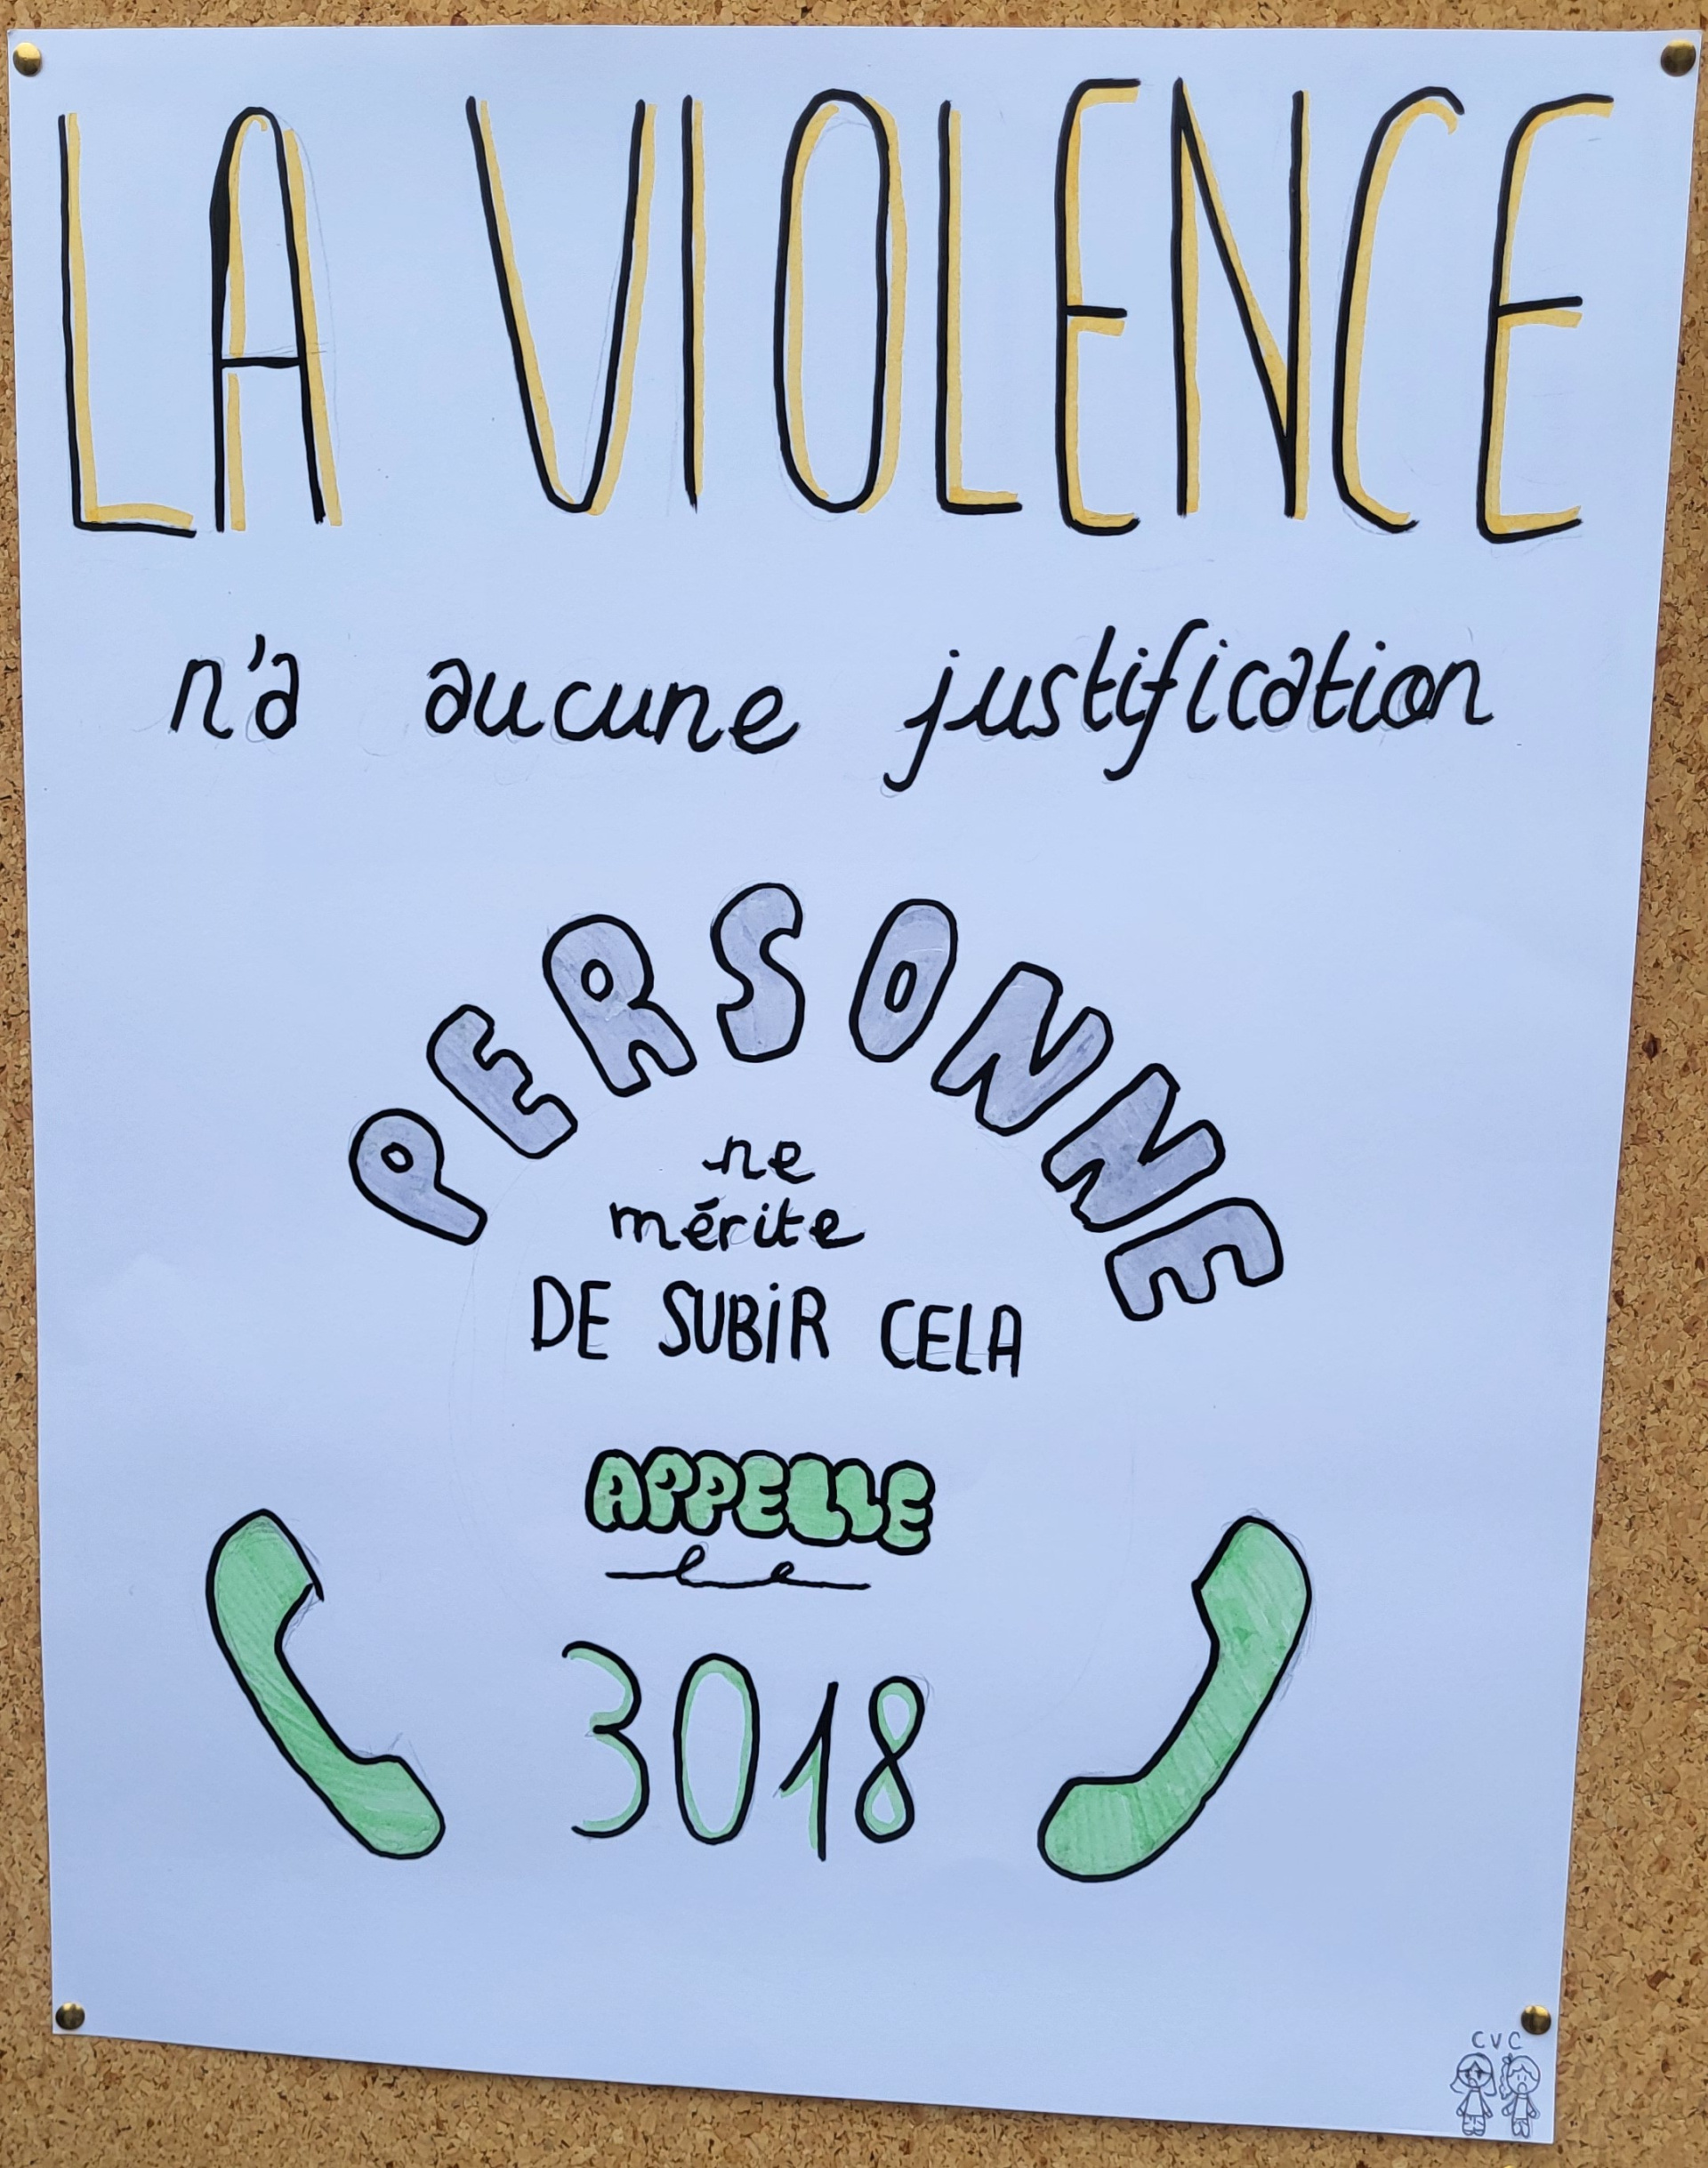 LA VIOLENCE
n'a aucune justification
PERSONNE
ne
mérite
DE SUBiR CELA
APPELLE
le
3018
CVC